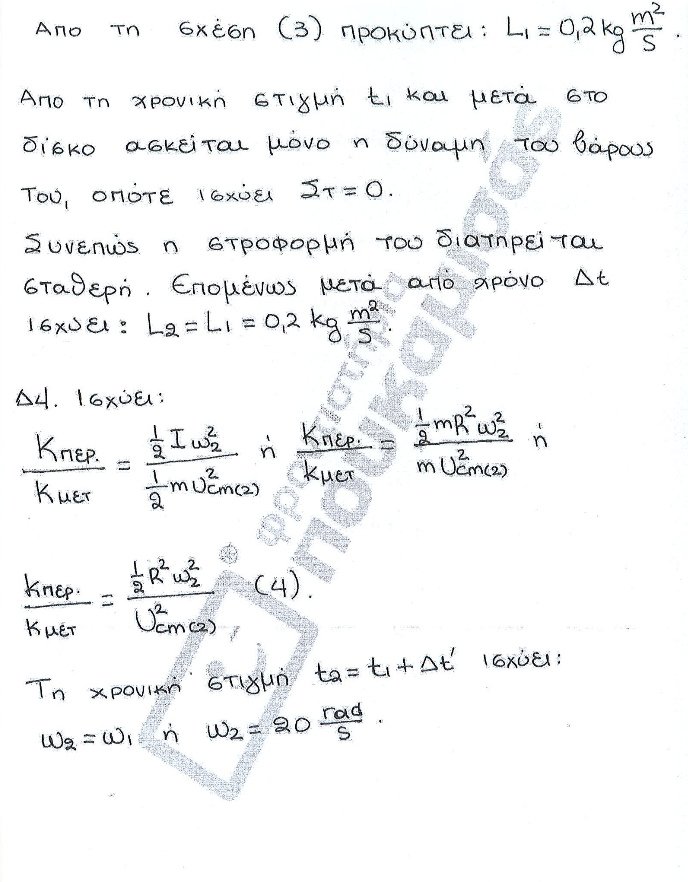 Απο τη σχέση (3) προκύπτει: L₁ = 0,2 kg m²/s.
Απο τη χρονική στιγμή t₁ και μετά στο
δίσκο ασκείται μόνο η δύναμη του βάρους
του, οπότε ισχύει Στ = 0.
Συνεπώς η στροφορμή του διατηρείται
σταθερή. Επομένως μετά από χρόνο Δt
ισχύει: L₂ = L₁ = 0,2 kg m²/s.
Δ4. Ισχύει:
Kπερ./Kμετ = (½ I ω₂²)/(½ m υ²cm(2)) ή Kπερ./Kμετ = (½ m R² ω₂²)/(m υ²cm(2)) ή
Kπερ./Kμετ = (½ R² ω₂²)/(υ²cm(2)) (4).
Τη χρονική στιγμή t₂ = t₁ + Δt' ισχύει:
ω₂ = ω₁ ή ω₂ = 20 rad/s.
φροντιστήρια
πουκαμισάς